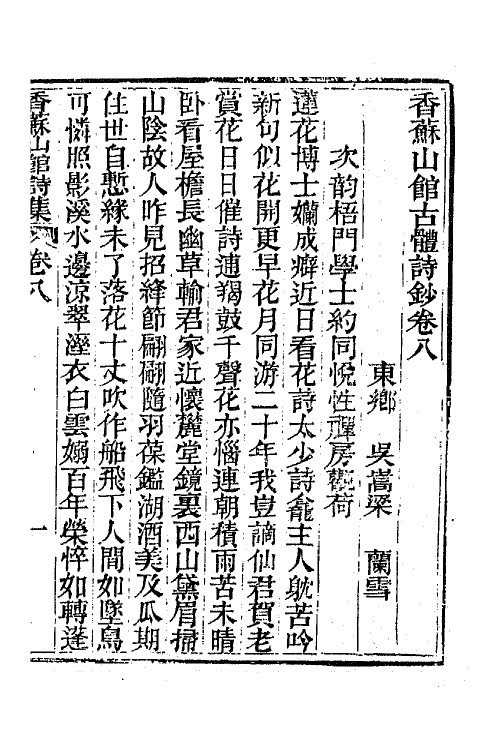 香蘇山館古體詩鈔卷八
東鄉 吳嵩梁 蘭雪
次韵梧門學士約同悅性禪房觀荷
蓮花博士嬾成癖近日看花詩太少詩龕主人耽苦吟
新句似花開更早花月同游二十年我豈謫仙君賀老
賞花日日催詩逋羯鼓千聲花亦惱連朝積雨苦未晴
卧看屋檐長幽草輸君家近懷麓堂鏡裏西山黛眉掃
山陰故人昨見招絳節翩翩隨羽葆鑑湖酒美及瓜期
住世自慙緣未了落花十丈吹作船飛下人間如墜鳥
可憐照影溪水邊涼翠溼衣白雲嫋百年榮悴如轉蓬
香蘇山館詩集 卷八 一